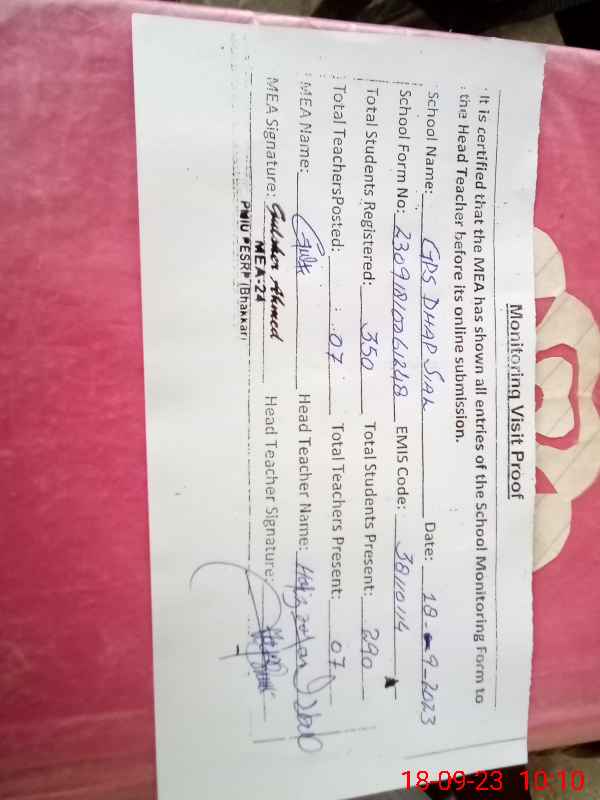 Monitoring Visit Proof
It is certified that the MEA has shown all entries of the School Monitoring Form to
the Head Teacher before its online submission.
School Name: GPS DHAP SIAL Date: 18-9-2023
School Form No: EMIS Code: 38110114
Total Students Registered: 350 Total Students Present: 290
Total TeachersPosted: 07 Total Teachers Present: 07
MEA Name: Head Teacher Name:
MEA Signature: Gulsher Ahmed Head Teacher Signature:
MEA-24
PMIU PESRP (Bhakkar)
18-09-23 10:10